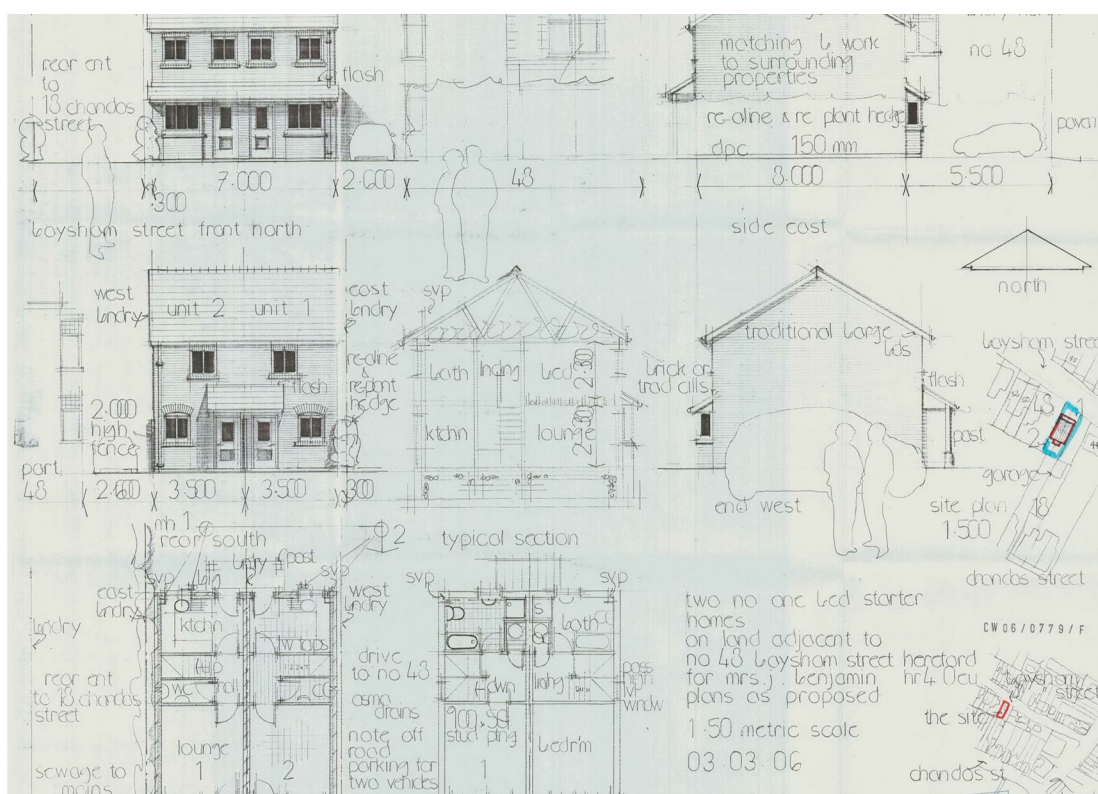 rear ent
to
18 chandos
street
flash
matching b work
to surrounding
properties
re-aline & re plant hedge
dpc 150 mm
no 48
7·000
2·600
48
8·000
5·500
·300
baysham street front north
side east
north
west
bndry
unit 2 unit 1
east
bndry
re-aline
&
re-plant
hedge
flash
2·000
high
fence
part
48
2·600
3·500
3·500
·300
rear south
svp
bath
lndng
bed
2·30
ktchn
lounge
2·30
typical section
traditional barge
bds
brick or
trad cills
flash
post
end west
baysham street
48
garage
18
site plan
1:500
chandos street
mh 1
2
svp
bin
bndry
post
svp
east
bndry
west
bndry
bndry
ktchn
w tops
wc
hall
rear ent
to 18 chandos
street
lounge
1
2
sewage to
mains
drive
to no 48
osma
drains
note off
road
parking for
two vehicles
svp
svp
bath
dwn
lndng
100 x 50
stud ptng
bedr'm
1
two no one bed starter
homes
on land adjacent to
no 48 baysham street hereford
for mrs. j. benjamin hr4 0eu
plans as proposed
1·50 metric scale
03·03·06
CW06/0779/F
baysham
street
the site
chandos st